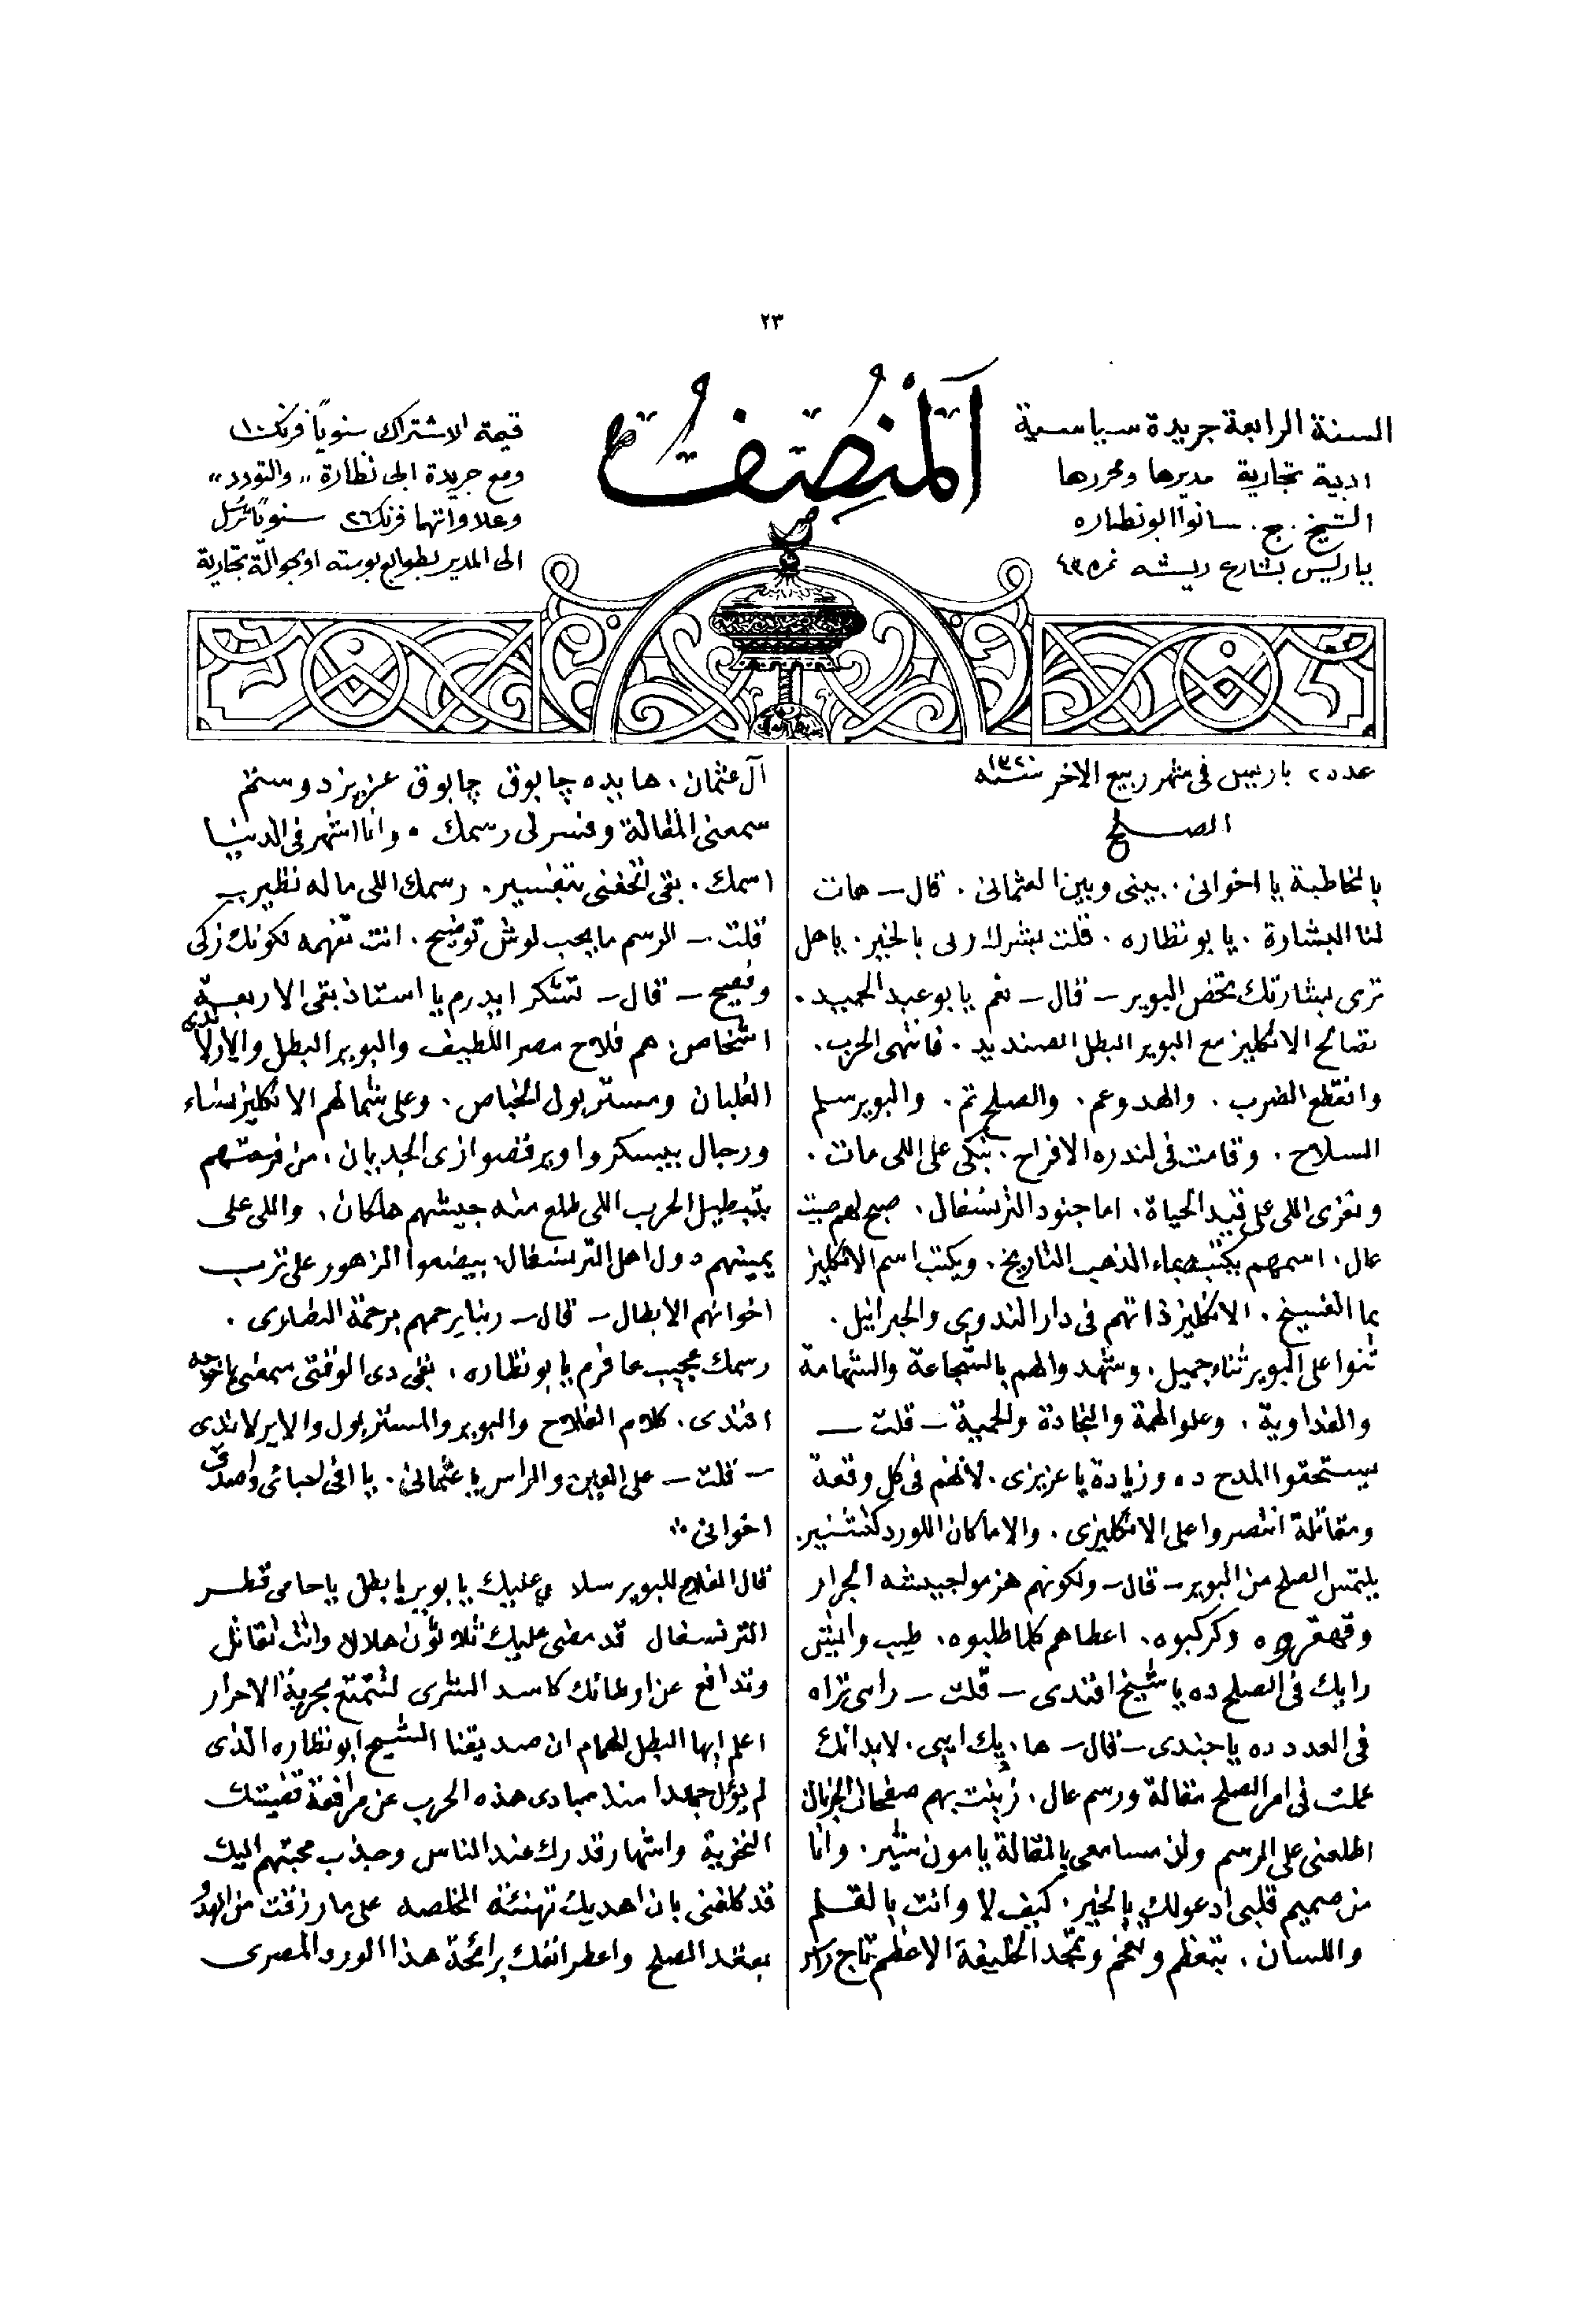 ٢٣
المنصف
السنة الرابعة جريدة سياسية
ادبية تجارية مديرها ومحررها
الشيخ . ج . سانوا ابو نظاره
بباريس بشارع ريشه نمره ٤٣
قيمة الاشتراك سنوياً فرنك ١٠
ومع جريدة ابى نظارة ״ والتودد ״
وعلاواتهما فرنك ٢٦ سنوياً ترسل
الى المدير بطوابع بوسته او بحوالة تجارية
عدد ٢ باريس فى شهر ربيع الاخر سنة ١٣٢٠
الصلح
بالمخاطبة يا اخوانى . بينى وبين العثمانى . قال ـ هات
لنا البشارة . يا بو نظاره . قلت بشرك ربى بالخير . يا هل
ترى بشارتك تخص البوير ـ قال ـ نعم يا بو عبد الحميد .
تصالح الانكليز مع البوير البطل الصنديد . فانتهى الحرب .
وانقطع الضرب . والهدو عم . والصلح تم . والبوير سلم
السلاح . وقامت فى لندره الافراح . نبكى على اللى مات .
ونعزى اللى على قيد الحياة . اما جنود الترنسفال . صبح لهم صيت
عال . اسمهم يكتب بماء الذهب التاريخ . ويكتب اسم الانكليز
بما الفسيخ . الانكليز ذاتهم فى دار الندوى والجرانيل .
ثنوا على البوير ثناء جميل . وشهدوا لهم بالشجاعة والشهامة
والفداوية . وعلو الهمة والنجادة والحمية ـ قلت ـ
يستحقوا المدح ده وزيادة يا عزيزى . لانهم فى كل وقعة
ومقاتلة انتصروا على الانكليزى . والا ما كان اللورد كتشنير .
يلتمس الصلح من البوير ـ قال ـ ولكونهم هزموا جيشه الجرار
وقهقروه وكركبوه . اعطاهم كلما طلبوه . طيب وانيش
رايك فى الصلح ده يا شيخ افندى ـ قلت ـ راى تراه
فى العدد ده يا جندى ـ قال ـ ها . پك ايى . لابد انك
عملت فى امر الصلح مقالة ورسم عال . زينت بهم صفحات الجرنال
اطلعنى على الرسم ولذ مسامعى بالمقالة يا مون شير . وانا
من صميم قلبى ادعولك بالخير . كيف لا وانت بالقلم
واللسان . بتعظم وتفخم وتمجد الخليفة الاعظم تاج راس
آل عثمان . هايده چابوق چابوق عزيز دوستم
سمعنى المقالة وفسر لى رسمك . وانا اشهر فى الدنيا
اسمك . بقى اتحفنى بتفسير . رسمك اللى ما له نظير ـ
قلت ـ الرسم ما يحب لوش توضيح . انت تفهمه لكونك زكى
وفصيح ـ قال ـ تشكر ايدرم يا استاذ بقى الاربعة
اشخاص . هم فلاح مصر اللطيف والبوير البطل والارلاندى
الغلبان ومستر بول الخباص . وعلى شمالهم الانكليز نساء
ورجال بيسكروا ويرقصوا زى الجديان . من فرحتهم
بتبطيل الحرب اللى طلع منه جيشهم هلكان . واللى على
يمينهم دول اهل الترنسفال . بيضعوا الزهور على ترب
اخوانهم الابطال ـ قال ـ ربنا يرحمهم برحمة النصارى .
رسمك عجيب عافرم يا بو نظاره . بقى دى الوقتى سمعنى يا خوجه
افندى . كلام الفلاح والبوير والمستر بول والايرلاندى
ـ قلت ـ على العين والراس يا عثمانى . يا اعز احبائى واصدق
اخوانى
قال الفلاح للبوير سلامى عليك يا بوير يا بطل يا حامى قطر
الترنسفال قد مضى عليك ثلاثون هلالا وانت تقاتل
وتدافع عن اوطانك كاسد الشرى لتتمتع بحرية الاحرار
اعلم ايها البطل الهمام ان صديقنا الشيخ ابو نظاره الذى
لم يؤل جهدا منذ مبادى هذه الحرب عن مرافعة قضيتك
الفخرية واشهار قدرك عند الناس وجذب محبتهم اليك
قد كلفنى بان اهديك تهنئته المخلصه على ما رزقت من الهدو
بعقد الصلح واعطر انفك برائحة هذا الورد المصرى